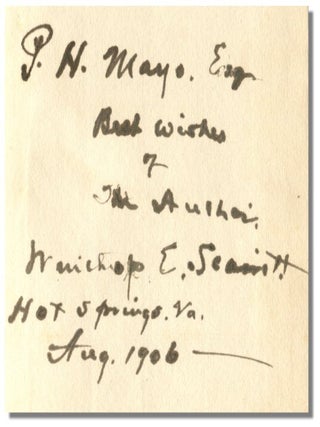 P. H. Mayo. Esq
Best wishes
of
The Author.
Winthrop E. Scarritt
Hot Springs. Va.
Aug. 1906 —